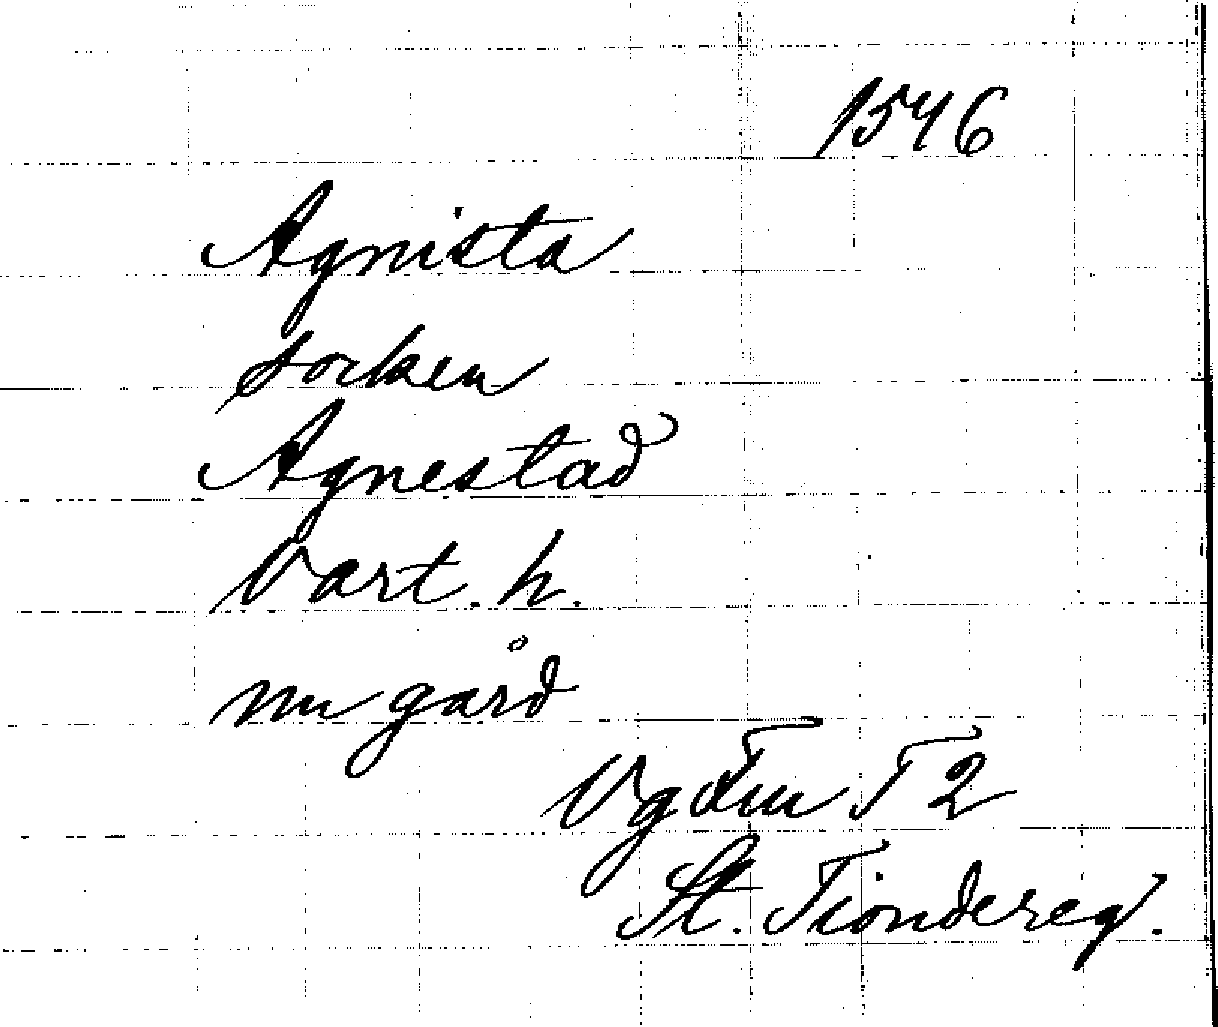 1546
Agnista
socken
Agnestad
Vart. h.
nu gård
Vg Tiu T 2
St. Tiondereg.